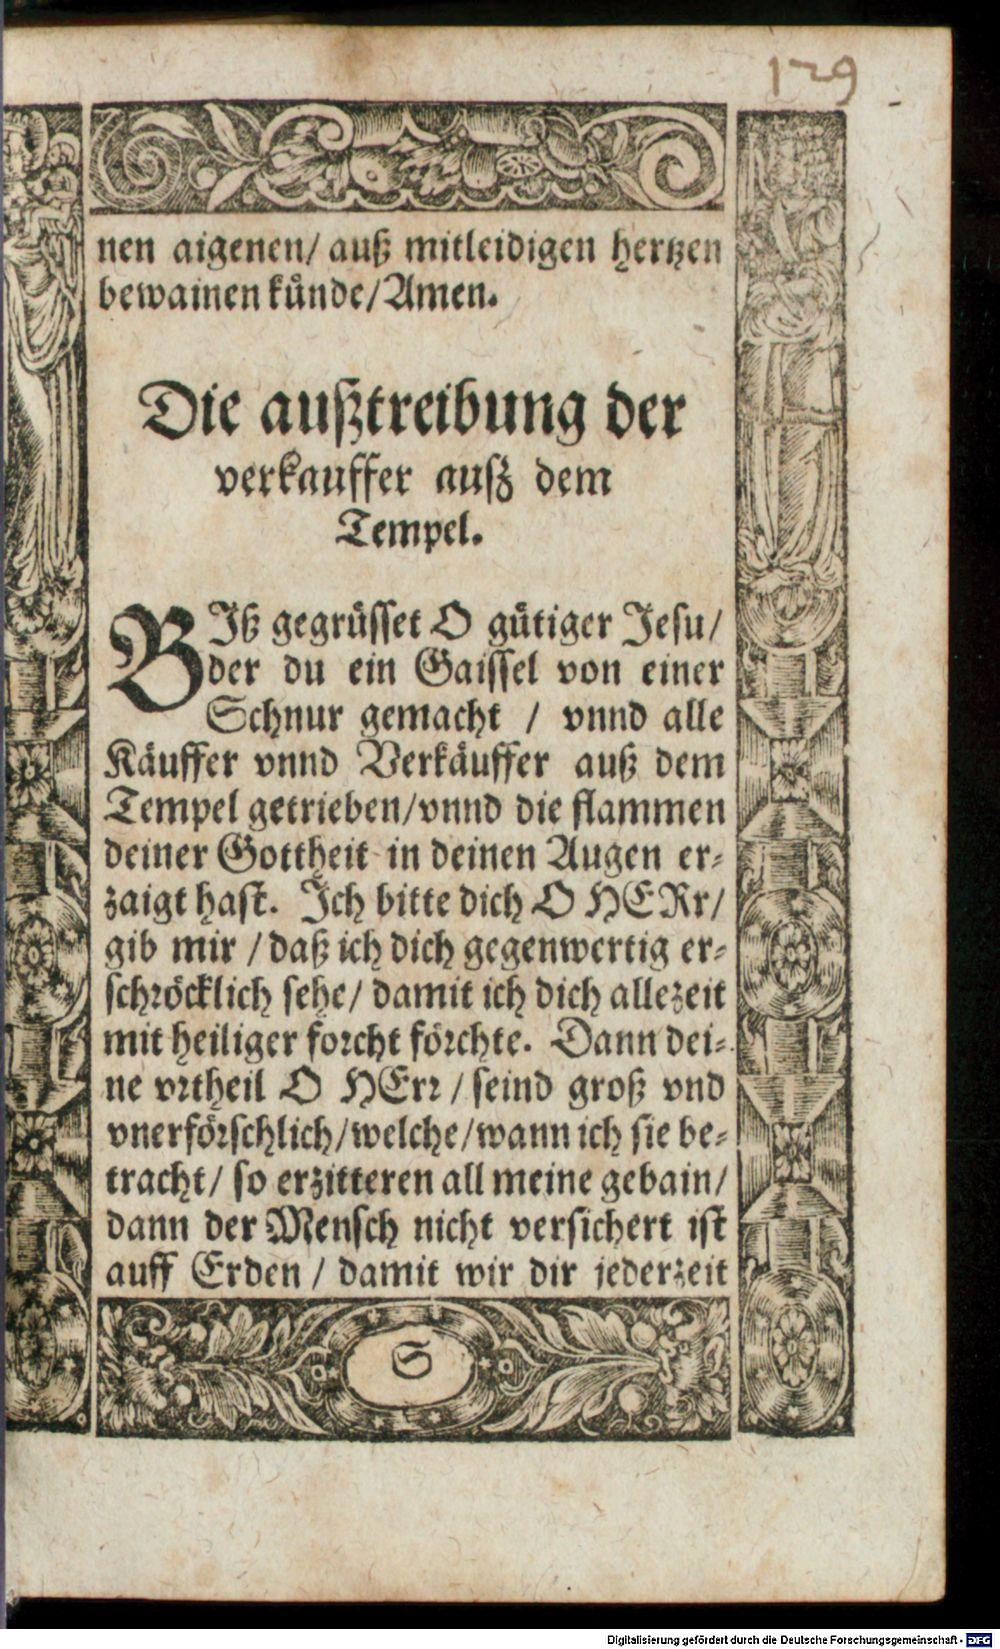 129
nen aigenen/ auß mitleidigen hertzen
bewainen künde/Amen.
Die außtreibung der
verkauffer ausz dem
Tempel.
BIß gegrüsset O gütiger Jesu/
der du ein Gaissel von einer
Schnur gemacht / vnnd alle
Käuffer vnnd Verkäuffer auß dem
Tempel getrieben/vnnd die flammen
deiner Gottheit in deinen Augen er-
zaigt hast. Ich bitte dich O HERr/
gib mir / daß ich dich gegenwertig er-
schröcklich sehe/ damit ich dich allezeit
mit heiliger forcht förchte. Dann dei-
ne vrtheil O HErr / seind groß vnd
vnerförschlich/welche/wann ich sie be-
tracht/ so erzitteren all meine gebain/
dann der Mensch nicht versichert ist
auff Erden / damit wir dir jederzeit
S
Digitalisierung gefördert durch die Deutsche Forschungsgemeinschaft - DFG